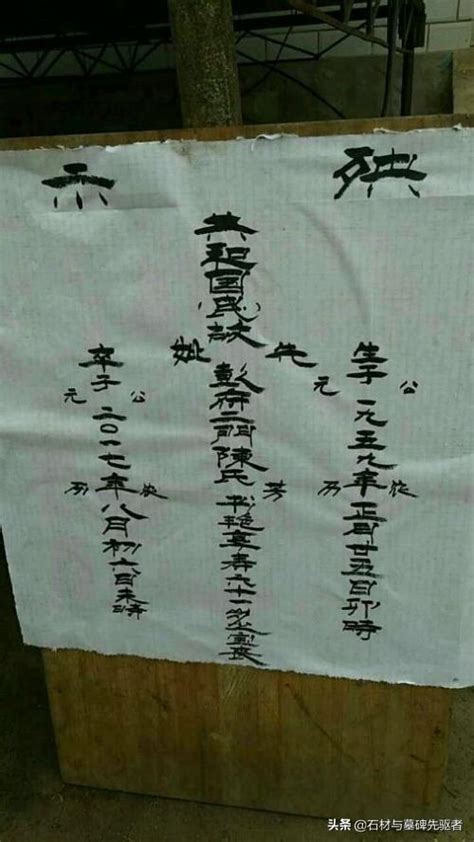 殃示
生于公元一九五九年农历正月廿五日卯時
共和国(民)故
先妣
彭府二門陳氏芳享寿六十一岁
卒于公元二〇一七年农历八月初六日未時
头条 @石材与墓碑先驱者